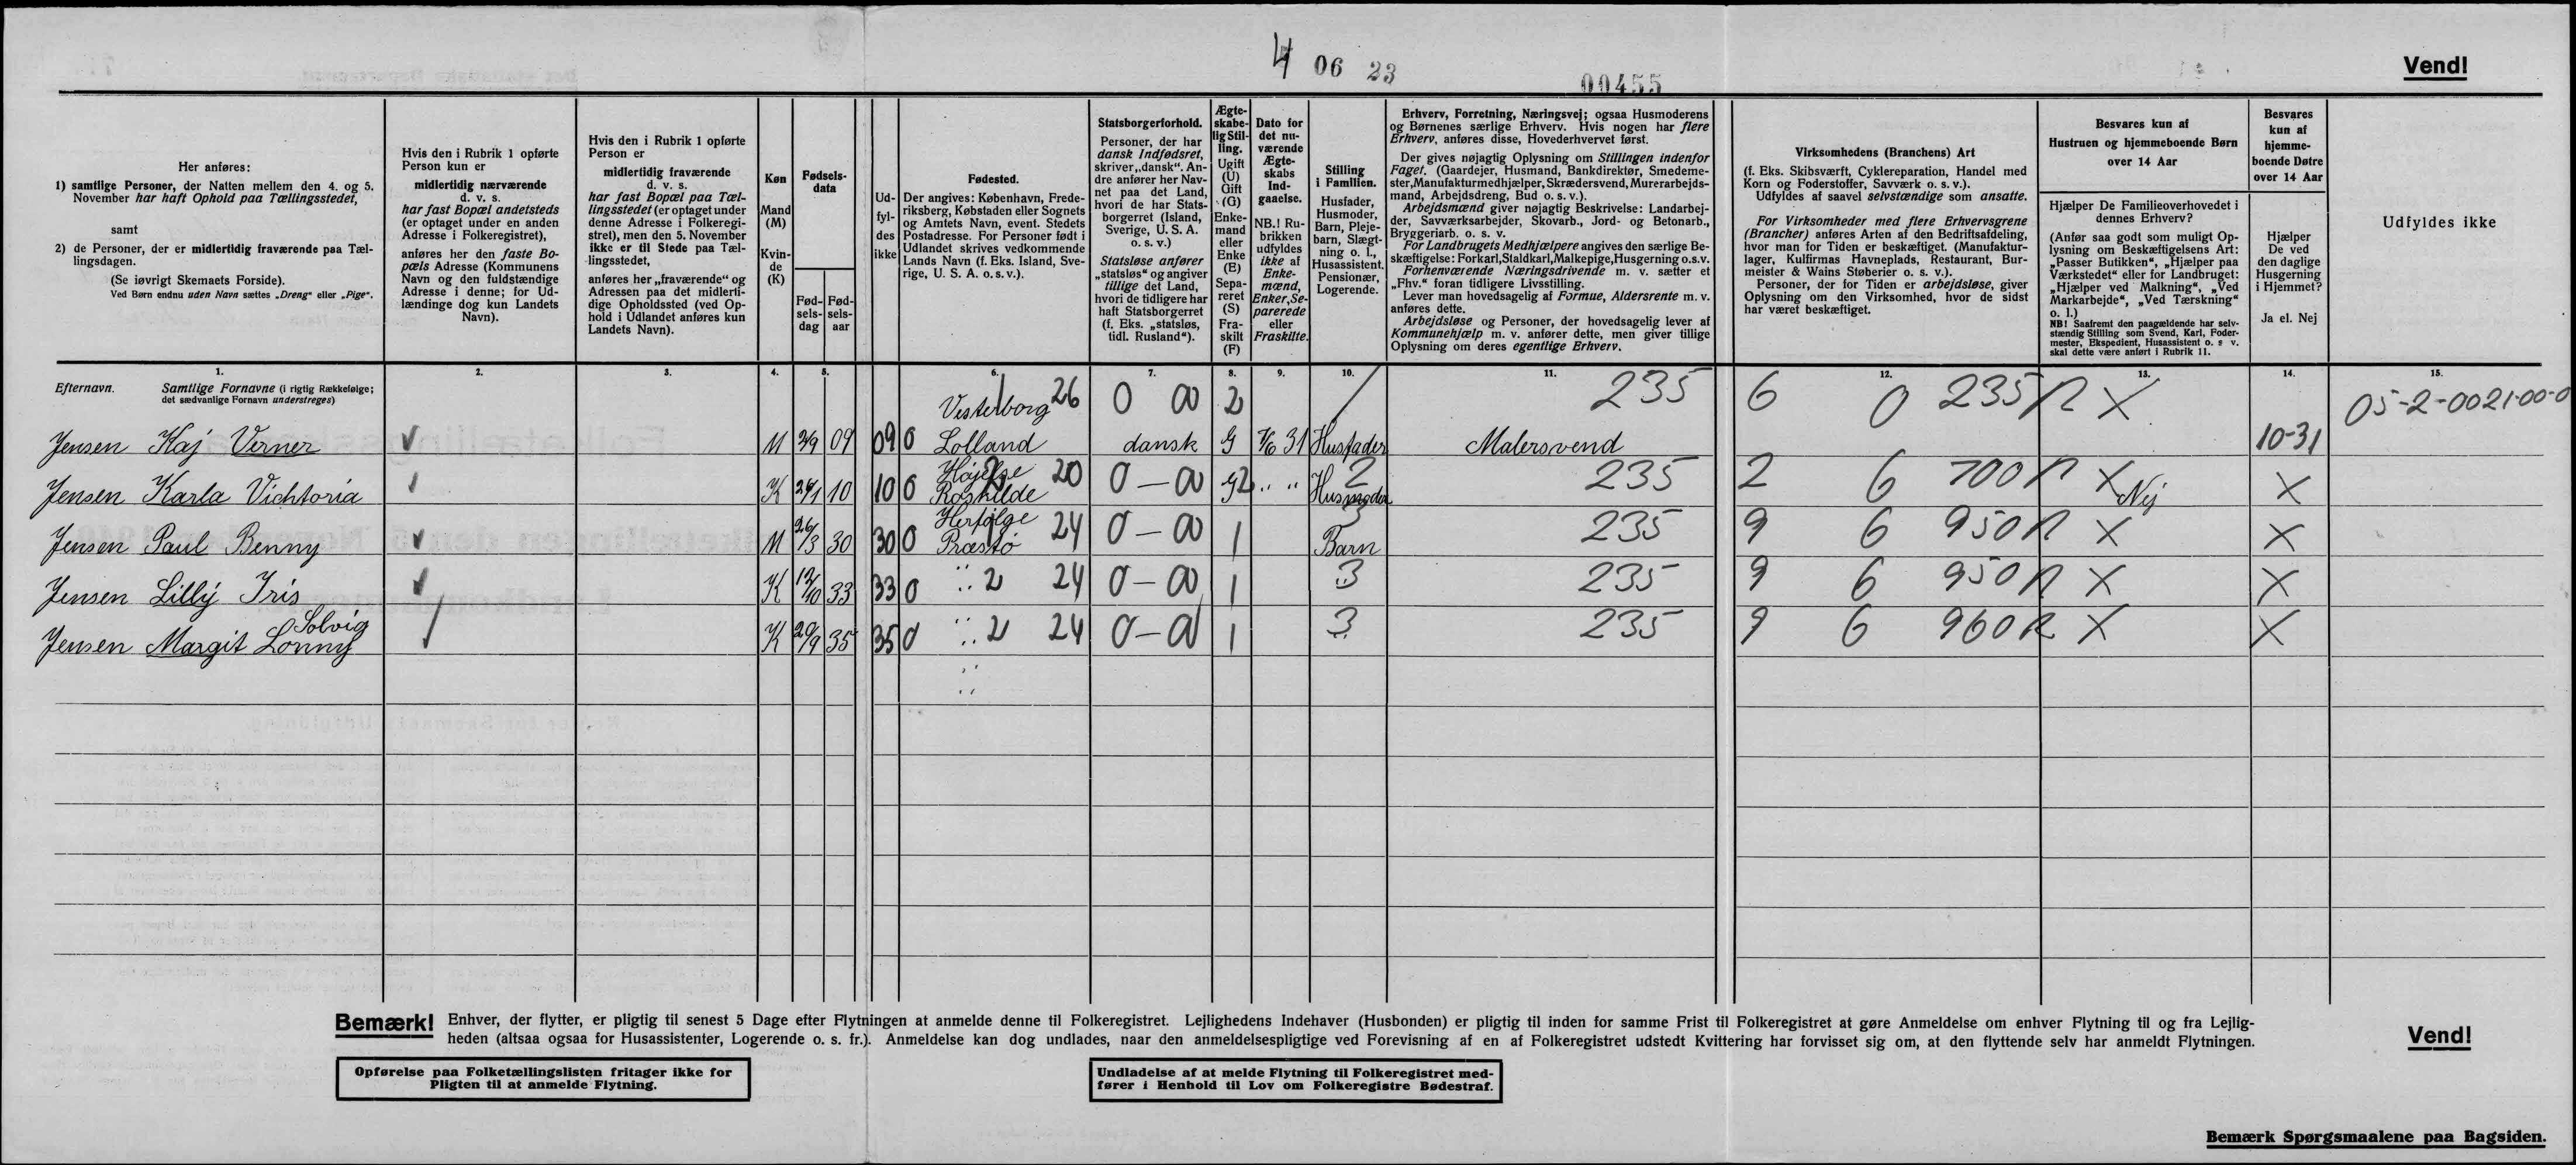 4 06 23
00455
Vend!
Her anføres:
1) samtlige Personer, der Natten mellem den 4. og 5.
November har haft Ophold paa Tællingsstedet,
samt
2) de Personer, der er midlertidig fraværende paa Tæl-
lingsdagen.
(Se iøvrigt Skemaets Forside).
Ved Børn endnu uden Navn sættes „Dreng“ eller „Pige“.
Hvis den i Rubrik 1 opførte
Person kun er
midlertidig nærværende
d. v. s.
har fast Bopæl andetsteds
(er optaget under en anden
Adresse i Folkeregistret),
anføres her den faste Bo-
pæls Adresse (Kommunens
Navn og den fuldstændige
Adresse i denne; for Ud-
lændinge dog kun Landets
Navn).
Hvis den i Rubrik 1 opførte
Person er
midlertidig fraværende
d. v. s.
har fast Bopæl paa Tæl-
lingsstedet (er optaget under
denne Adresse i Folkeregi-
stret), men den 5. November
ikke er til Stede paa Tæl-
lingsstedet,
anføres her „fraværende“ og
Adressen paa det midlerti-
dige Opholdssted (ved Op-
hold i Udlandet anføres kun
Landets Navn).
Køn
Mand
(M)
Kvin-
de
(K)
Fødsels-
data
Fød-
sels-
dag
Fød-
sels-
aar
Ud-
fyl-
des
ikke
Fødested.
Der angives: København, Frede-
riksberg, Købstaden eller Sognets
og Amtets Navn, event. Stedets
Postadresse. For Personer født i
Udlandet skrives vedkommende
Lands Navn (f. Eks. Island, Sve-
rige, U. S. A. o. s. v.).
Statsborgerforhold.
Personer, der har
dansk Indfødsret,
skriver „dansk“. An-
dre anfører her Nav-
net paa det Land,
hvori de har Stats-
borgerret (Island,
Sverige, U. S. A.
o. s. v.)
Statsløse anfører
„statsløs“ og angiver
tillige det Land,
hvori de tidligere har
haft Statsborgerret
(f. Eks. „statsløs,
tidl. Rusland“).
Ægte-
skabe-
lig Stil-
ling.
Ugift
(U)
Gift
(G)
Enke-
mand
eller
Enke
(E)
Sepa-
reret
(S)
Fra-
skilt
(F)
Dato for
det nu-
værende
Ægte-
skabs
Ind-
gaaelse.
NB.! Ru-
brikken
udfyldes
ikke af
Enke-
mænd,
Enker, Se-
parerede
eller
Fraskilte.
Stilling
i Familien.
Husfader,
Husmoder,
Barn, Pleje-
barn, Slægt-
ning o. l.,
Husassistent,
Pensionær,
Logerende.
Erhverv, Forretning, Næringsvej; ogsaa Husmoderens
og Børnenes særlige Erhverv. Hvis nogen har flere
Erhverv, anføres disse, Hovederhvervet først.
Der gives nøjagtig Oplysning om Stillingen indenfor
Faget. (Gaardejer, Husmand, Bankdirektør, Smedeme-
ster, Manufakturmedhjælper, Skrædersvend, Murerarbejds-
mand, Arbejdsdreng, Bud o. s. v.).
Arbejdsmænd giver nøjagtig Beskrivelse: Landarbej-
der, Savværksarbejder, Skovarb., Jord- og Betonarb.,
Bryggeriarb. o. s. v.
For Landbrugets Medhjælpere angives den særlige Be-
skæftigelse: Forkarl, Staldkarl, Malkepige, Husgerning o.s.v.
Forhenværende Næringsdrivende m. v. sætter et
„Fhv.“ foran tidligere Livsstilling.
Lever man hovedsagelig af Formue, Aldersrente m. v.
anføres dette.
Arbejdsløse og Personer, der hovedsagelig lever af
Kommunehjælp m. v. anfører dette, men giver tillige
Oplysning om deres egentlige Erhverv.
Virksomhedens (Branchens) Art
(f. Eks. Skibsværft, Cyklereparation, Handel med
Korn og Foderstoffer, Savværk o. s. v.).
Udfyldes af saavel selvstændige som ansatte.
For Virksomheder med flere Erhvervsgrene
(Brancher) anføres Arten af den Bedriftsafdeling,
hvor man for Tiden er beskæftiget. (Manufaktur-
lager, Kulfirmas Havneplads, Restaurant, Bur-
meister & Wains Støberier o. s. v.).
Personer, der for Tiden er arbejdsløse, giver
Oplysning om den Virksomhed, hvor de sidst
har været beskæftiget.
Besvares kun af
Hustruen og hjemmeboende Børn
over 14 Aar
Hjælper De Familieoverhovedet i
dennes Erhverv?
(Anfør saa godt som muligt Op-
lysning om Beskæftigelsens Art:
„Passer Butikken“, „Hjælper paa
Værkstedet“ eller for Landbruget:
„Hjælper ved Malkning“, „Ved
Markarbejde“, „Ved Tærskning“
o. l.)
NB! Saafremt den paagældende har selv-
stændig Stilling som Svend, Karl, Foder-
mester, Ekspedient, Husassistent o. s. v.
skal dette være anført i Rubrik 11.
Besvares
kun af
hjemme-
boende Døtre
over 14 Aar
Hjælper
De ved
den daglige
Husgerning
i Hjemmet?
Ja el. Nej
Udfyldes ikke
1. 2. 3. 4. 5. 6. 7. 8. 9. 10. 11. 12. 13. 14. 15.
Efternavn. Samtlige Fornavne (i rigtig Rækkefølge;
det sædvanlige Fornavn understreges)
Vesterborg 26 0 00 2 235 6 0 235 R X 05-2-0021-00-0
Jensen Kaj Verner M 2/9 09 09 0 Lolland dansk G 7/6 31 Husfader Malersvend 10-31
Højelse 20 0 - 00 2 235 2 6 700 R X X
Jensen Karla Vichtoria K 24/1 10 10 0 Roskilde G2 " " Husmoder Nej
Herfølge 24 0 - 00 3 235 9 6 950 R X
Jensen Paul Benny M 26/3 30 30 0 Præstø 1 Barn X
Jensen Lilly Iris K 12/10 33 33 0 " 2 24 0 - 00 1 3 235 9 6 950 R X X
Solvig
Jensen Margit Lonny K 29/9 35 35 0 " 2 24 0 - 00 1 3 235 9 6 960 R X X
Bemærk! Enhver, der flytter, er pligtig til senest 5 Dage efter Flytningen at anmelde denne til Folkeregistret. Lejlighedens Indehaver (Husbonden) er pligtig til inden for samme Frist til Folkeregistret at gøre Anmeldelse om enhver Flytning til og fra Lejlig-
heden (altsaa ogsaa for Husassistenter, Logerende o. s. fr.). Anmeldelse kan dog undlades, naar den anmeldelsespligtige ved Forevisning af en af Folkeregistret udstedt Kvittering har forvisset sig om, at den flyttende selv har anmeldt Flytningen.
Vend!
Opførelse paa Folketællingslisten fritager ikke for
Pligten til at anmelde Flytning.
Undladelse af at melde Flytning til Folkeregistret med-
fører i Henhold til Lov om Folkeregistre Bødestraf.
Bemærk Spørgsmaalene paa Bagsiden.